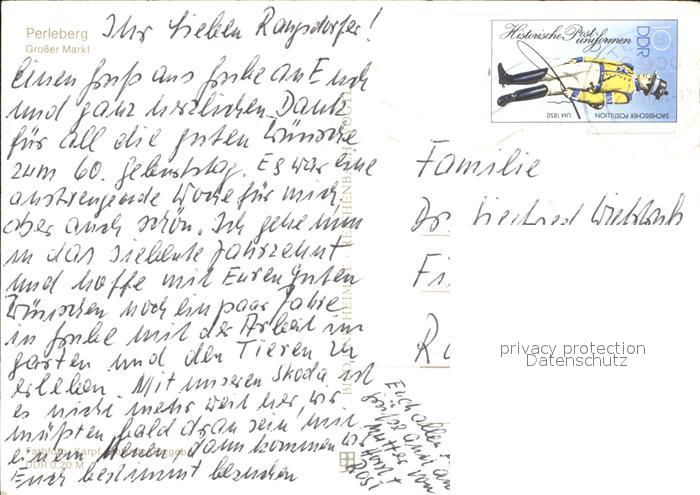 Perleberg
Großer Markt
Ihr lieben Rangsdorfer!
Einen Gruß aus Grube an Euch
und ganz herzlichen Dank
für all die guten Wünsche
zum 60. Geburtstag. Es war eine
anstrengende Woche für mich,
aber auch schön. Ich gehe nun
in das siebente Jahrzehnt
und hoffe mit Euren guten
Wünschen noch ein paar Jahre
in Grube mit der Arbeit im
Garten und den Tieren zu
erleben. Mit unseren Skoda ist
es nicht mehr weit her, wir
müßten bald dran sein mit
einem neuen, dann kommen wir
Euch bestimmt besuchen
Euch allen
Grüße auch an
Mutter von
Horst
Rosi
DDR 0,20 M
BILD UND HEIMAT REICHENBACH
Historische Postuniformen
DDR
10
SÄCHSISCHER POSTILLION
UM 1850
Familie
Dr. Siegfried
Fi
R
privacy protection
Datenschutz